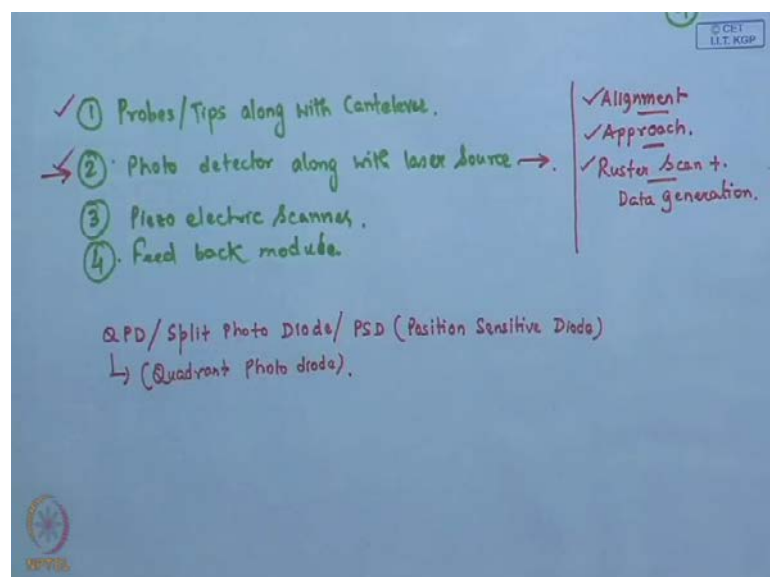 © CET
I.I.T. KGP
① Probes/Tips along with Cantelever.
② Photo detector along with laser source →.
③ Piezo electric Scanner.
④. Feed back module.
✓ Alignment
✓ Approach.
✓ Ruster Scan +.
Data generation.
QPD/Split Photo Diode/PSD (Position Sensitive Diode)
↳ (Quadrant Photo diode).
NPTEL